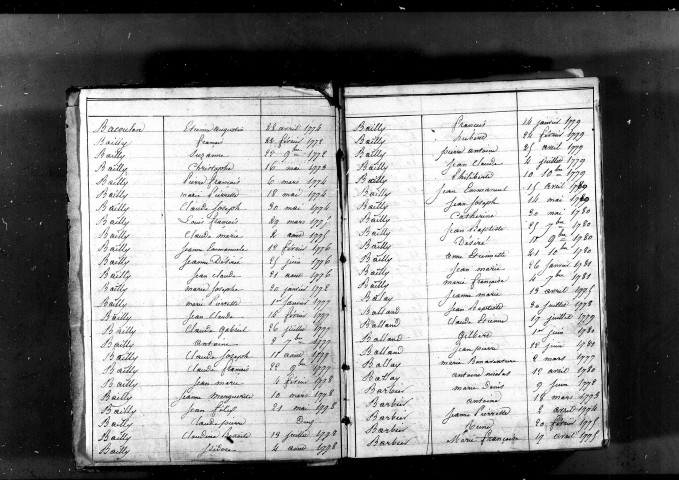 Bacoulon Etienne Augustin 22 avril 1774
Bailly françois 22 février 1772
Bailly Suzanne 22 9bre 1772
Bailly Christophe 16 mai 1773
Bailly Pierre françois 6 mars 1774
Bailly marie Pierrette 18 mai 1774
Bailly Claude Joseph 30 mai 1774
Bailly Louis françois 29 mars 1775
Bailly Claude marie 2 aout 1775
Bailly Jeanne Emmanuele 12 février 1776
Bailly Jeanne Désiré 25 juin 1776
Bailly Jean claude 21 aout 1776
Bailly marie Josephe 20 janvier 1778
Bailly marie Pierrette 1er janvier 1777
Bailly Jean Claude 15 février 1777
Bailly Claude Gabriel 26 juillet 1777
Bailly antoine 2 7bre 1777
Bailly Claude Joseph 11 aout 1777
Bailly Claude francois 22 9bre 1777
Bailly Jean marie 4 février 1778
Bailly Jeanne Marguerite 10 mars 1778
Bailly Jean 21 mai 1778
Bailly Claude pierre
Bailly Claudine 19 juillet 1778
Bailly 4 aout 1778
Bailly françois 24 janvier 1779
Bailly 24 février 1779
Bailly pierre antoine 25 avril 1779
Bailly Jean Claude 4 juillet 1779
Bailly Philiberte 10 10bre 1779
Bailly Jean Emmanuel 15 avril 1780
Bailly Jean Joseph 14 mai 1780
Bailly Catherine 30 mai 1780
Bailly Jean Baptiste 25 7bre 1780
Bailly Désiré 18 9bre 1780
Bailly anne Pierrette 21 10bre 1780
Bailly Jean marie 26 janvier 1781
Bailly marie françoise 4 7bre 1781
Balay Jeanne marie 13 avril 1775
Balland Jean Baptiste 30 juillet 1778
Balland Claude Etienne 17 juillet 1779
Balland Gilbert 1er juin 1780
Balland Jean pierre 12 juin 1780
Ballay marie Bonaventure 2 mars 1777
Ballay antoine nicolas 12 avril 1780
Barbier marie denis 9 juin 1772
Barbier antoine 18 mars 1773
Barbier Jeanne Pierrette 2 avril 1774
Barbier Reine 20 février 1775
Barbier Marie françoise 19 avril 1775